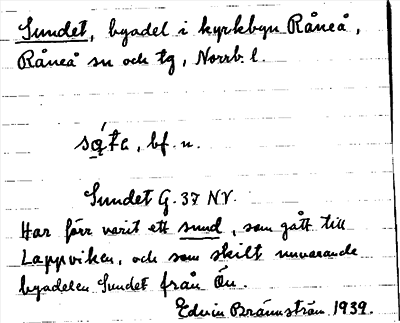 Sundet, byadel i kyrkbyn Råneå,
Råneå sn och tg, Norrb. l.
bf. n.
Sundet G. 37 NV.
Har förr varit ett sund, som gått till
Lappviken, och som skilt nuvarande
byadelen Sundet från Ön.
Edvin Brännström 1939.